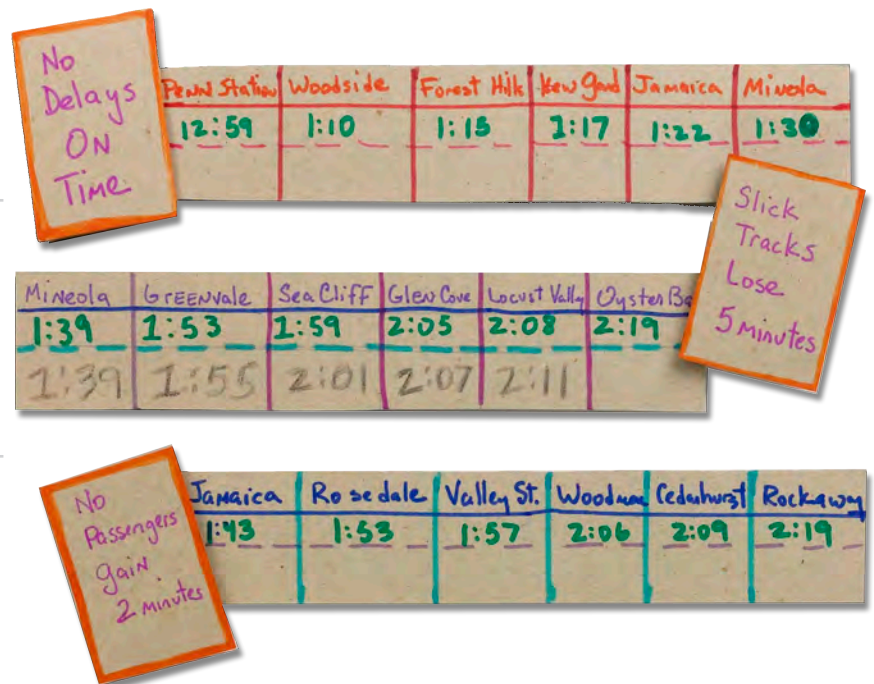 No
Delays
ON
Time
Penn Station Woodside Forest Hills Kew Gard Jamaica Mineola
12:59 1:10 1:15 1:17 1:22 1:30
Slick
Tracks
Lose
5 minutes
Mineola Greenvale Sea Cliff Glen Cove Locust Vally Oyster Ba
1:39 1:53 1:59 2:05 2:08 2:19
1:39 1:55 2:01 2:07 2:11
No
Passengers
gain
2 minutes
Jamaica Rosedale Valley St. Woodmae Cedarhurst Rockaway
1:43 1:53 1:57 2:06 2:09 2:19